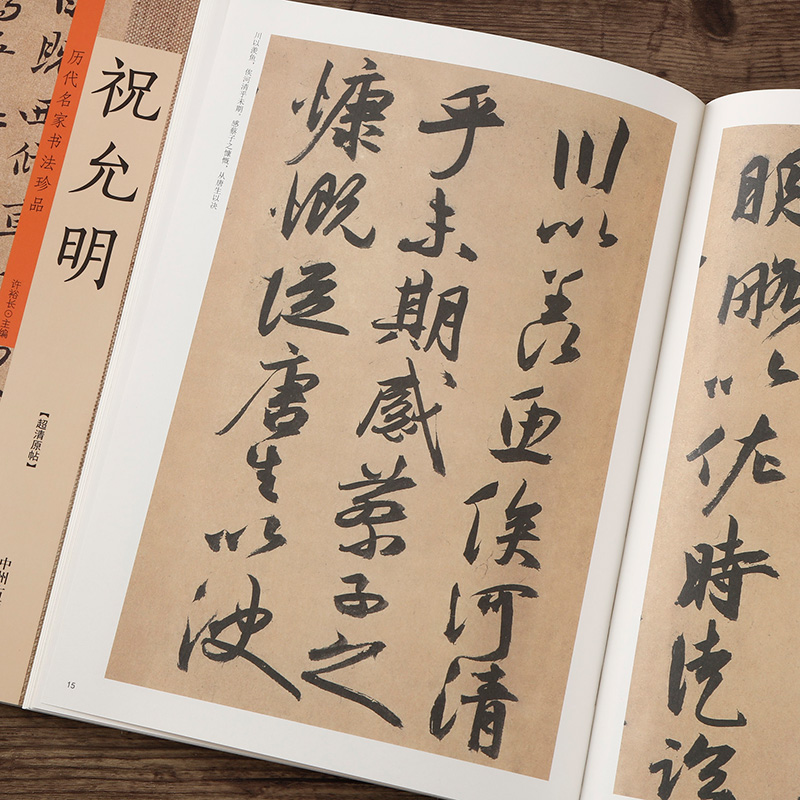 历代名家书法珍品
祝允明
许裕长⊙主编
【超清原帖】
中州
川以羡鱼，俟河清乎未期，感蔡子之慷慨，从唐生以决
川以羡鱼俟河清
乎未期感蔡子之
慷慨從唐生以决
明略以佐時徒臨
15